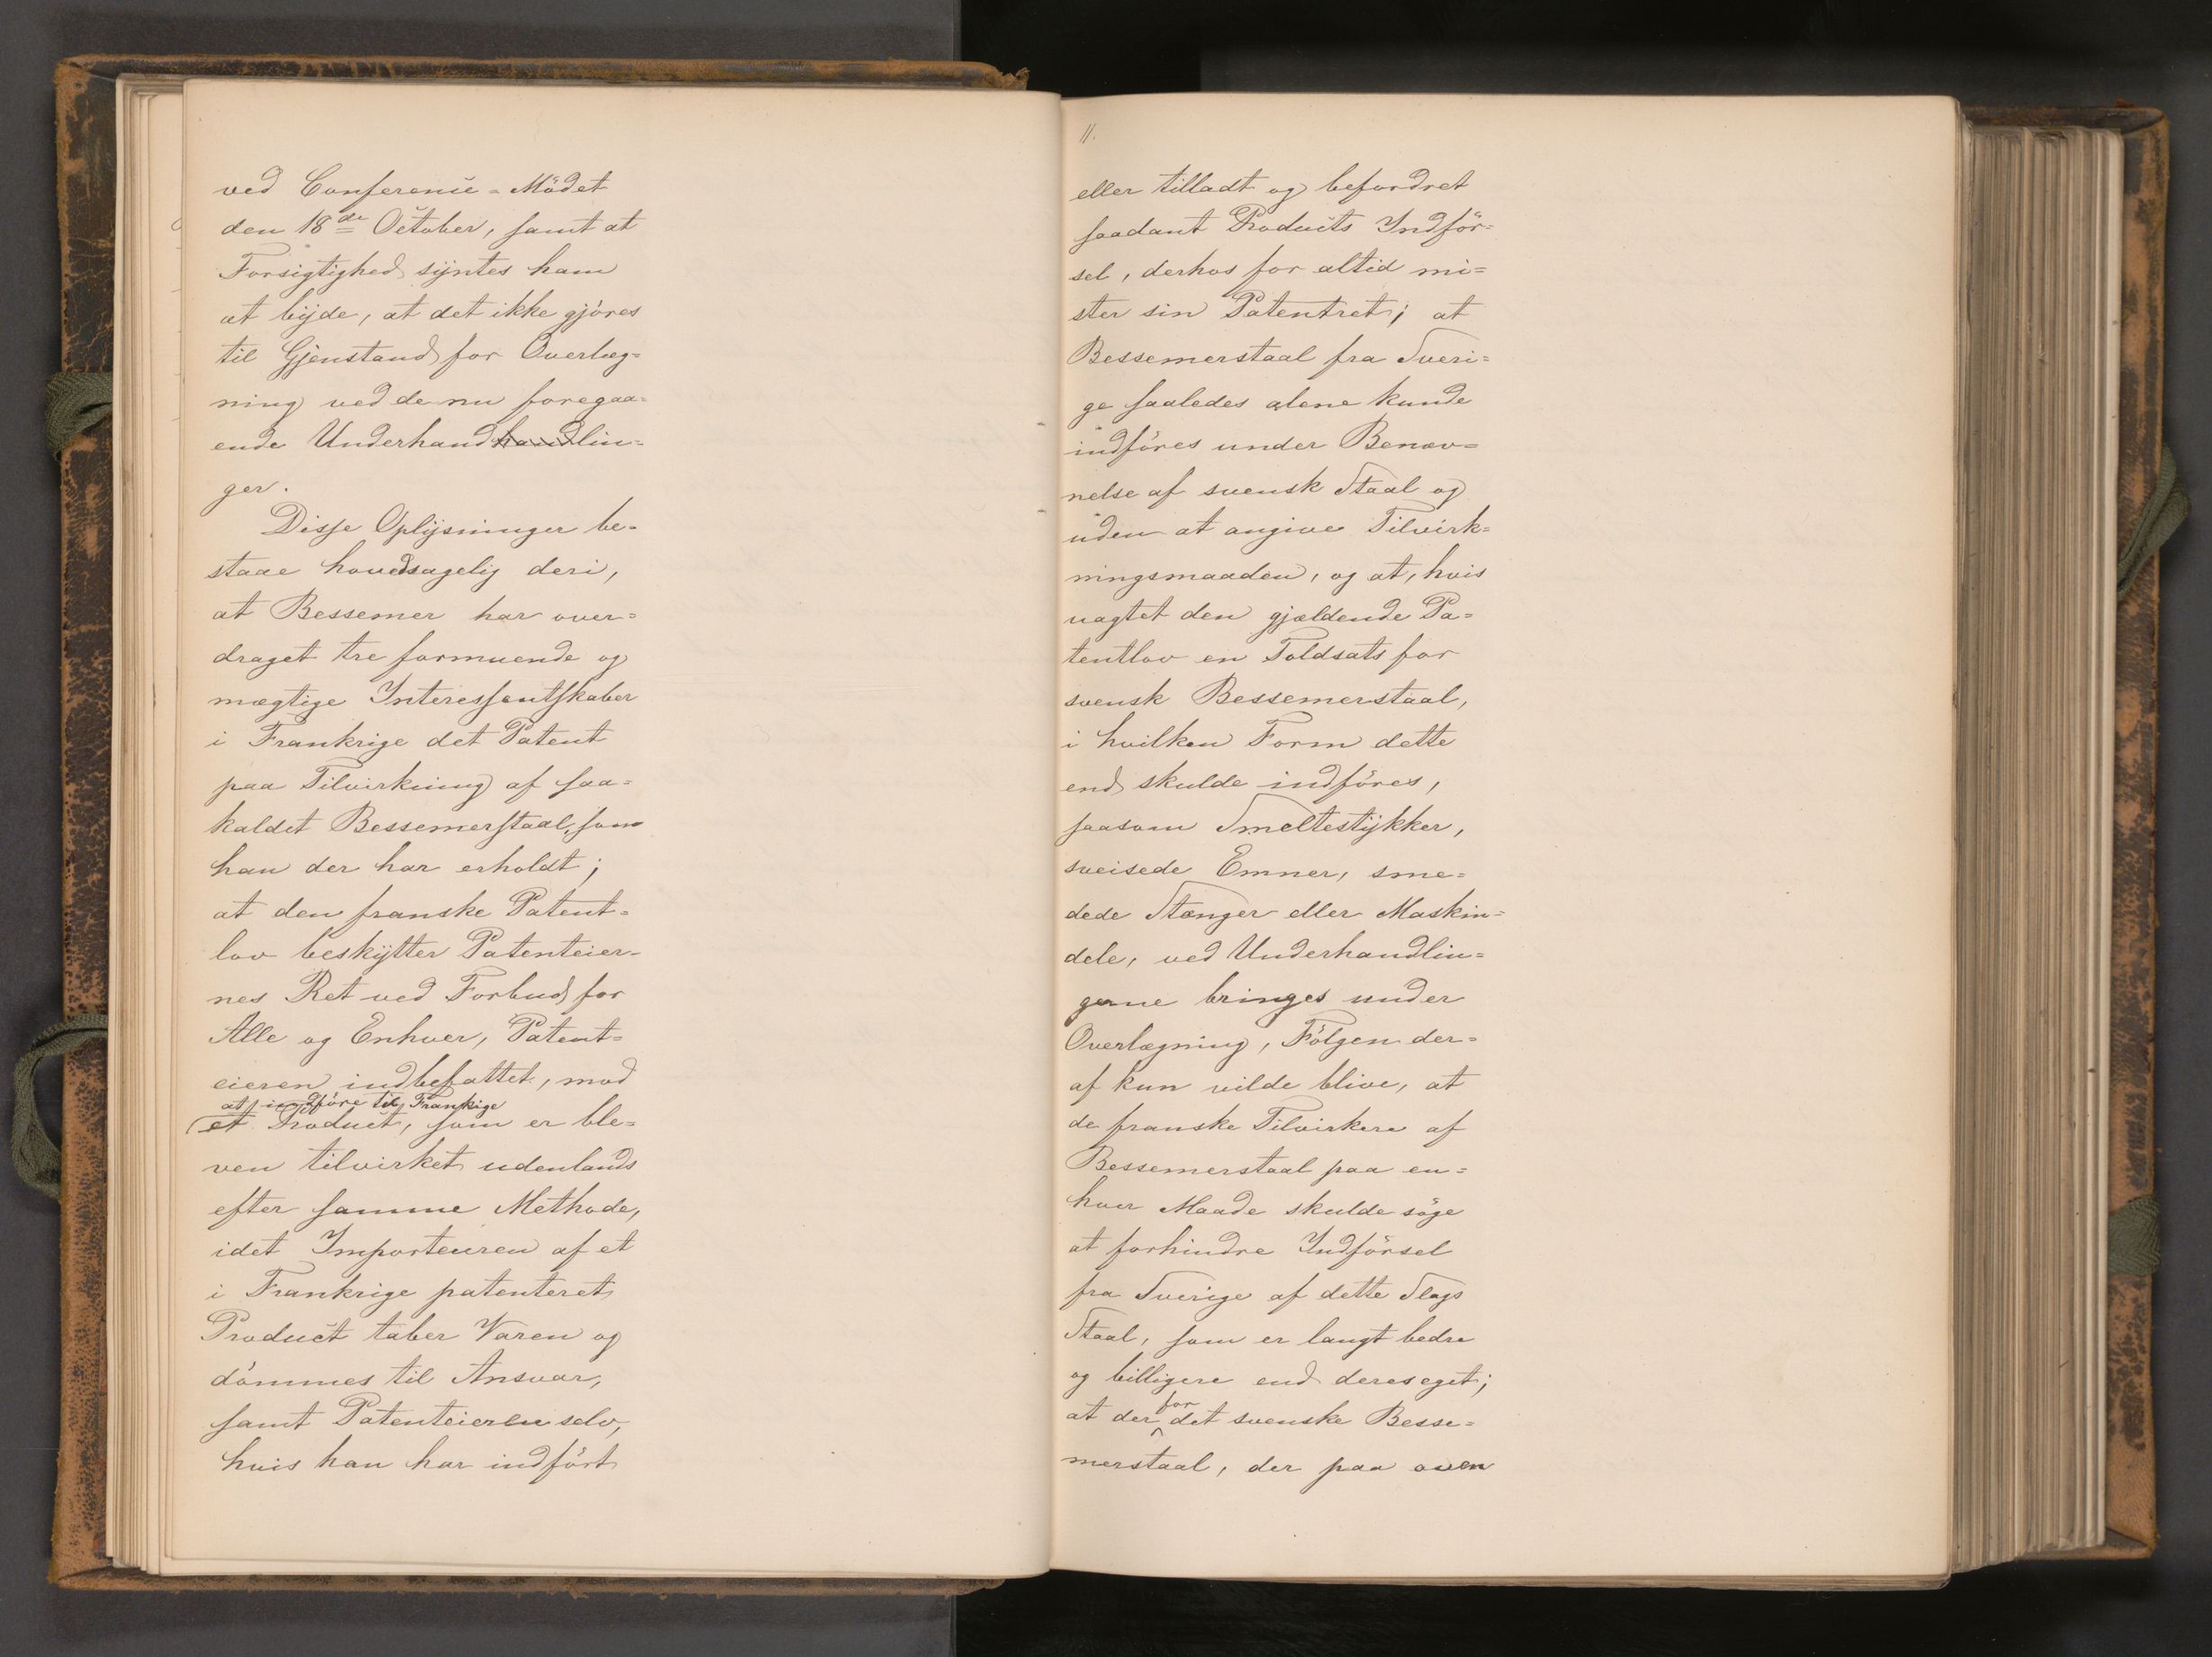 ved Conference=Mödet
den 18de October, samt at
Forsigtighed syntes ham
at byde, at det ikke gjöres
til Gjenstand for Overlæg=
ning ved de nu foregaa=
ende Underhandhandlin=
ger.
Disse Oplysninger be=
staae hovedsagelig deri,
at Bessemer har over=
draget tre formuende og
mægtige Interessentskaber
i Frankrige det Patent
paa Tilvirkning af saa=
kaldet Bessemerstaal, som
han der har erholdt;
at den franske Patent=
lov beskytter Patenteier=
nes Ret ved Forbud for
Alle og Enhver, Patent=
eieren indbefattet, mod
at indföre til Frankrige
et Product, som er ble=
ven tilvirket udenlands
efter samme Methode,
idet Importeuren af et
i Frankrige patenteret
Product taber Varen og
dömmes til Ansvar,
samt Patenteieren selv,
hvis han har indfört
11.
eller tilladt og befordret
saadant Products Indför=
sel, derhos for altid mi=
ster sin Patentret; at
Bessemerstaal fra Sveri=
ge saaledes alene kunde
indföres under Benæv=
nelse af svensk Staal og
uden at angive Tilvirk=
ningsmaaden, og at, hvis
uagtet den gjældende Pa=
tentlov en Toldsats for
svensk Bessemerstaal,
i hvilken Form dette
end skulde indföres,
saasom Smeltestykker,
sveisede Emner, sme=
dede Stænger eller Maskin=
dele, ved Underhandlin=
gerne bringes under
Overlægning, Fölgen der=
af kun vilde blive, at
de franske Tilvirkere af
Bessemerstaal paa en=
hver Maade skulde söge
at forhindre Indförsel
fra Sverige af dette Slags
Staal, som er langt bedre
og billigere end deres eget;
at der for det svenske Besse=
merstaal, der paa oven